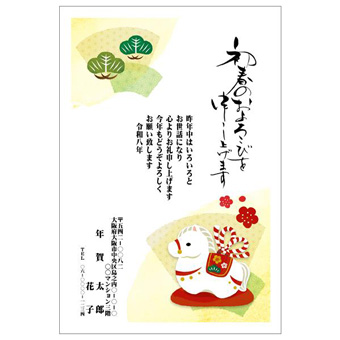 初春のおよろこびを
申し上げます
昨年中はいろいろと
お世話になり
心よりお礼申し上げます
今年もどうぞよろしく
お願い致します
令和八年
〒五四二-〇〇八二
大阪府大阪市中央区島之内〇-〇-〇
〇〇マンション三階
年賀 太郎
花子